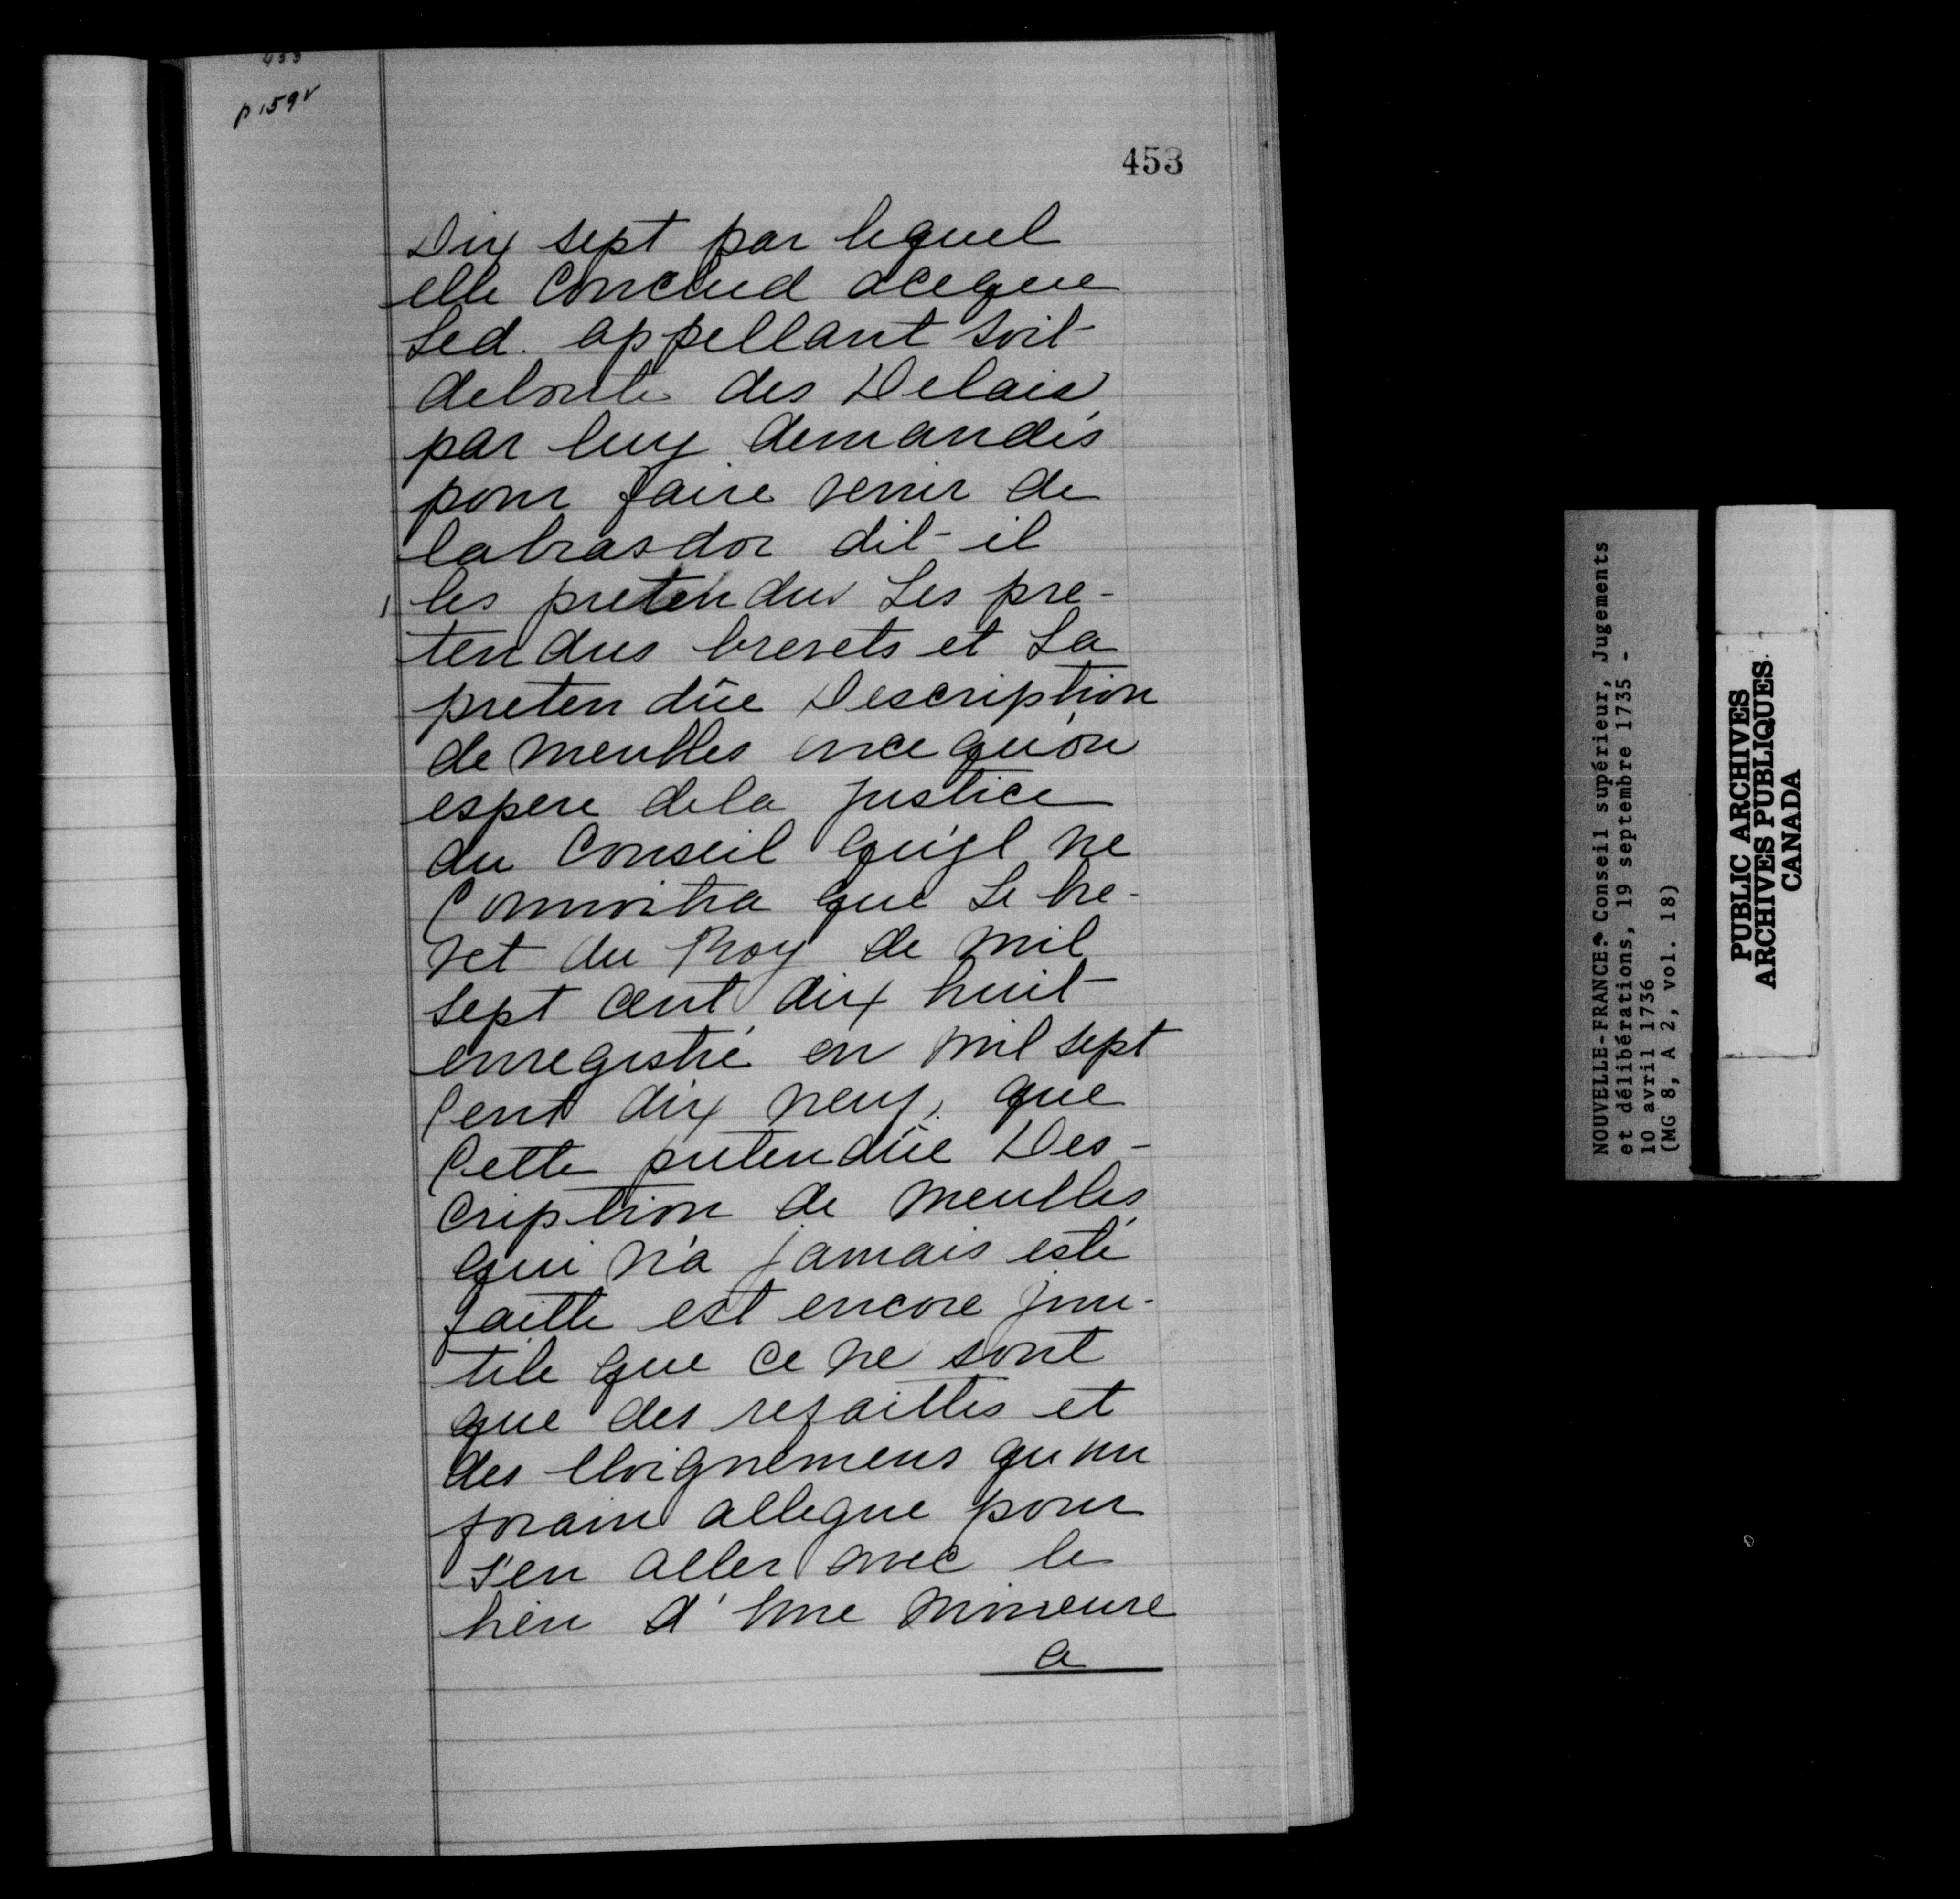 453
p 159v
453
Dix sept par lequel
elle Conclud aceque
Led. appellant soit
deboute des Delais
par luy demandés
pour faire venir de
labrasdor dit-il
les pretendus Les pre-
tendus brevets et La
pretendüe Description
de meubles ence qu'on
espere dela justice
du Conseil qu'jl ne
Connoitra que Le bre-
vet du Roy de mil
sept cent dix huit
enregistré en mil sept
Cent dix neuf, que
Cette pretendüe Des-
cription de meubles
qui n'a jamais esté
faitte est encore jnu-
tile que ce ne sont
que des refaittes et
des Eloignemens qu'un
forain allegue pour
s'en aller avec le
bien d'Une mineure
a
NOUVELLE-FRANCE: Conseil supérieur, Jugements
et délibérations, 19 septembre 1735 -
10 avril 1736
(MG 8, A 2, vol. 18)
PUBLIC ARCHIVES
ARCHIVES PUBLIQUES
CANADA